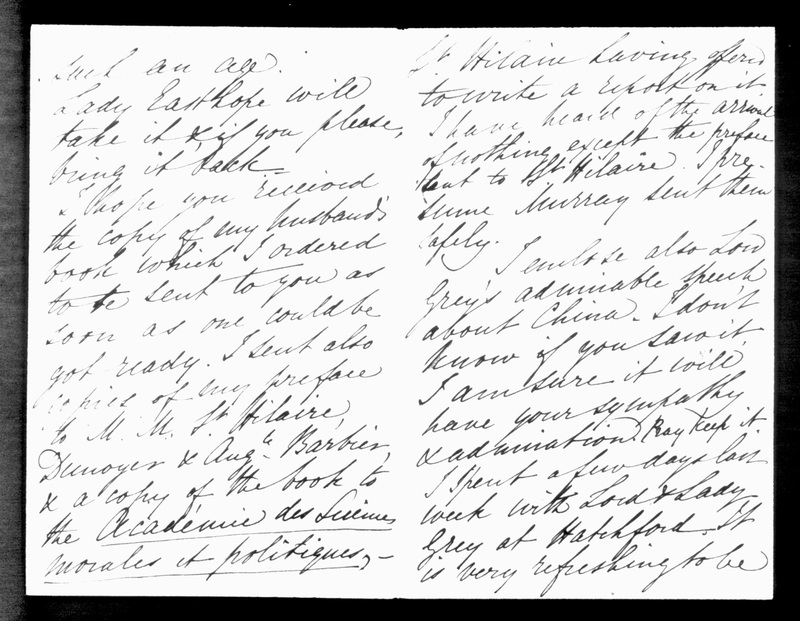 such an age.
Lady Easthope will
take it & if you please,
bring it back.
I hope you received
the copy of my husband's
book which I ordered
to be sent to you as
soon as one could be
got ready. I sent also
copies of my preface
to M. M. St Hilaire,
Dunoyer & Augte Barbier,
& a copy of the book to
the Académie des Sciences
morales et politiques,—
St Hilaire having offered
to write a report on it.
I have heard of the arrival
of nothing except the preface
sent to St Hilaire. I pre-
sume Murray sent them
safely.
I enclose also Lord
Grey's admirable speech
about China. I don't
know if you saw it.
I am sure it will
have your sympathy
& admiration. Pray keep it.
I spent a few days last
week with Lord & Lady
Grey at Hatchford. It
is very refreshing to be